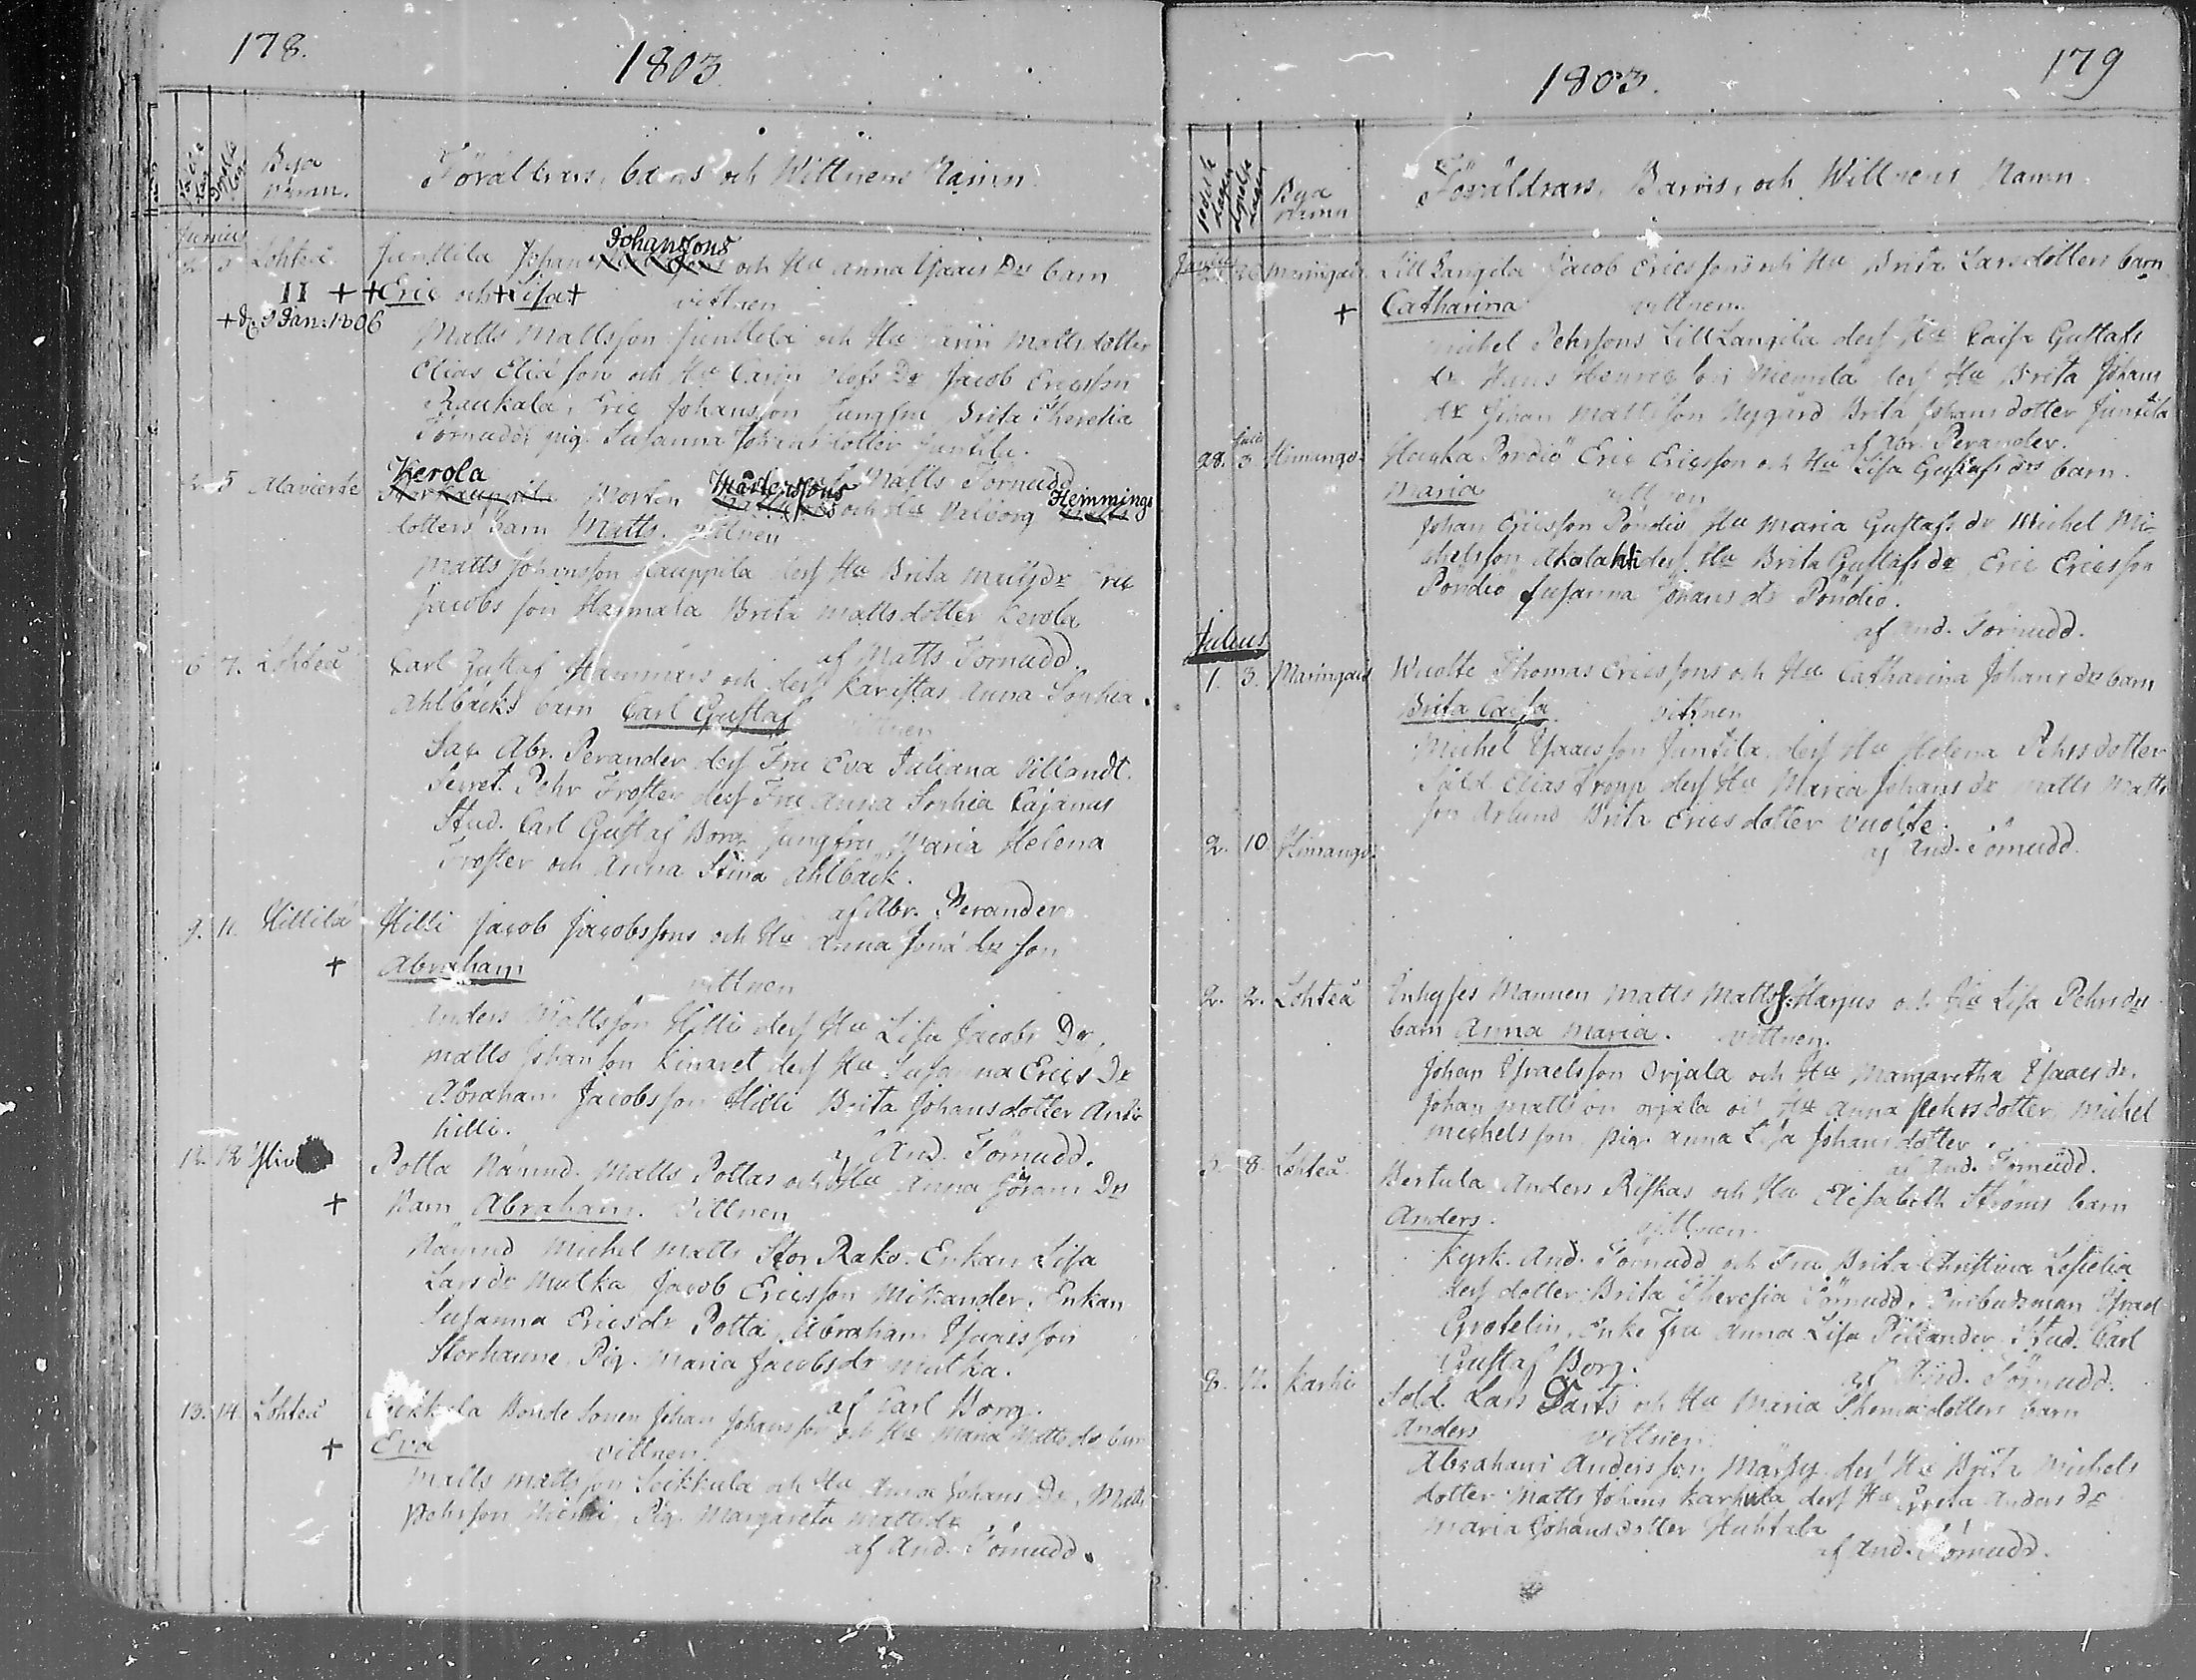 178.
1803
Byanamn.
Föräldrars, barns och Wittnens Namn
Junius
2. 3 Lohteå Junttila Johan Johansſons och Hu Anna Iſaacs Drs barn
II + +Eric och +Liſa+ vittnen
+d. 9 Jan: 1806
Matts Mattsſon Junttila och Hu Carin Mattsdotter
Elias Eliæſon och Hu Carin Dr Jacob Ericsſon
Raukala, Eric Johansſon Jungfru Brita Thereſia
Törnudd, pig. Suſanna Johansdotter Juntila.
af Matts Törnudd
5 Alavieske Kerola Morten Mårtensſons och Hu Valborg Hemmings
dotters barn Matts. vittnen
Matts Johansſon Kauppila deſſ Hu Brita Mattsdr Eric
Jacobsſon Hannula Brita Mattsdotter Kerola
af Matts Törnudd.
6 7. Lohteå Carl Guſtaf Hammars och deſſ Kariſtas Anna Sophia
Ahlbäcks barn Carl Guſtaf vittnen
Sac. Abr. Perander deſſ Fru Eva Juliana Tillandt.
Secret. Pehr Froſter deſſ Fru Anna Sophia Cajanus
Stud. Carl Guſtaf Borg Jungfru Maria Helena
Froſter och Anna Stina Ahlbäck.
af Abr. Perander
9. 11. Hillilä Hilli Jacob Jacobsſons och Hu Anna Jonæ dr ſon
+ Abraham vittnen
Anders Mattsſon Hilli deſſ Hu Liſa Jacobs Dr,
Matts Johansſon Kinaret deſſ Hu Suſanna Erics Dr
Abraham Jacobsſon Hilli Brita Johansdotter Anti
hilli.
af And. Törnudd.
12. 12 Potta Nämnd. Matts Pottas och Hu Anna Johans Drs
+ Barn Abraham. Vittnen
Nämnd Michel Matts Stor Rako. Enkan Liſa
Larsdr Mutka Jacob Ericsſon Mikander. Enkan
Suſanna Ericsdr Potta, Abraham Iſaacsſon
Storhanne. Pig. Maria Jacobsdr Mutka.
af Carl Borg.
13. 14. Lohteå Seikkula Bonde Sonen Johan Johansſon och Hu Maria Mattsdrs barn
+ Eva vittnen.
Matts Mattsſon Seikkula och Hu Anna Johans Dr, Matts
Pehrsſon Niemi. Pig. Margareta Mattsdr
af And. Törnudd.
1803.
179
Byanamn
Föräldrars, Barns, och Wittnens Namn
Junius 26 Maringais Lill Langila Jacob Ericsſons och Hu Brita Larsdotters barn
+ Catharina vittnen.
Michel Pehrsſons Lill Langila deſſ Hu Caiſa Guſtafs
dr Hans Henricsſon Niemelä deſſ Hu Brita Johans
dr Johan Mattsſon Nygård Brita Johansdotter Juntila
af Abr. Perander.
28. Juli 3 Himango Pöndiö Eric Ericsſon och Hu Liſa Guſtafs drs barn.
Maria vittnen
Johan Ericsſon Pöndiö Hu Maria Guſtafs dr Michel Mi-
chelsſon Ahalahti deſſ. Hu Brita Guſtafs dr Eric Ericsſon
Pöndiö Suſanna Johans dr Pöndiö.
af And. Törnudd.
Julius
1. 3. Maringais Wuolte Thomas Ericsſons och Hu Catharina Johansdrs barn
Brita Caiſa vittnen
Michel Iſaacsſon Juntila deſſ Hu Helena Pehrsdotter
Sold Elias Kropp deſſ Hu Maria Johans dr Matts Matts
ſon Brita Ericsdotter Vuolte.
af And. Törnudd.
2. 10 Himango
2. 2. Lohteå Inhyſes Mannen Matts Mattsſ. Harjus och Hu Liſa Pehrsdrs
barn Anna Maria. vittnen.
Johan Iſraelsſon Orjala och Hu Margaretha Iſaacs dr.
Johan Mattsſon Orjala och Hu Anna Pehrsdotter, Michel
Michelsſon, pig. Anna Liſa Johansdotter
af And. Törnudd.
8. Lohteå Bertula Anders Riſkas och Hu Eliſabeth Ströms barn
Anders. vittnen.
Kyrk. And. Törnudd och Fru Brita Chriſtina
deſſ dotter Brita Thereſia Törnudd. Ombudsman Iſrael
Grotelin, Enke Fru Anna Liſa Stud. Carl
Guſtaf Borg.
af And. Törnudd.
8. 12. Karhi Sold. Lars Darts och Hu Maria Thomædotters barn
Anders vittnen
Abraham Andersſon deſſ Hu Brita Michels
dotter Matts Johans Karhula deſſ Hu Greta Anders dr
Maria Johansdotter Huhtala
af And. Törnudd.